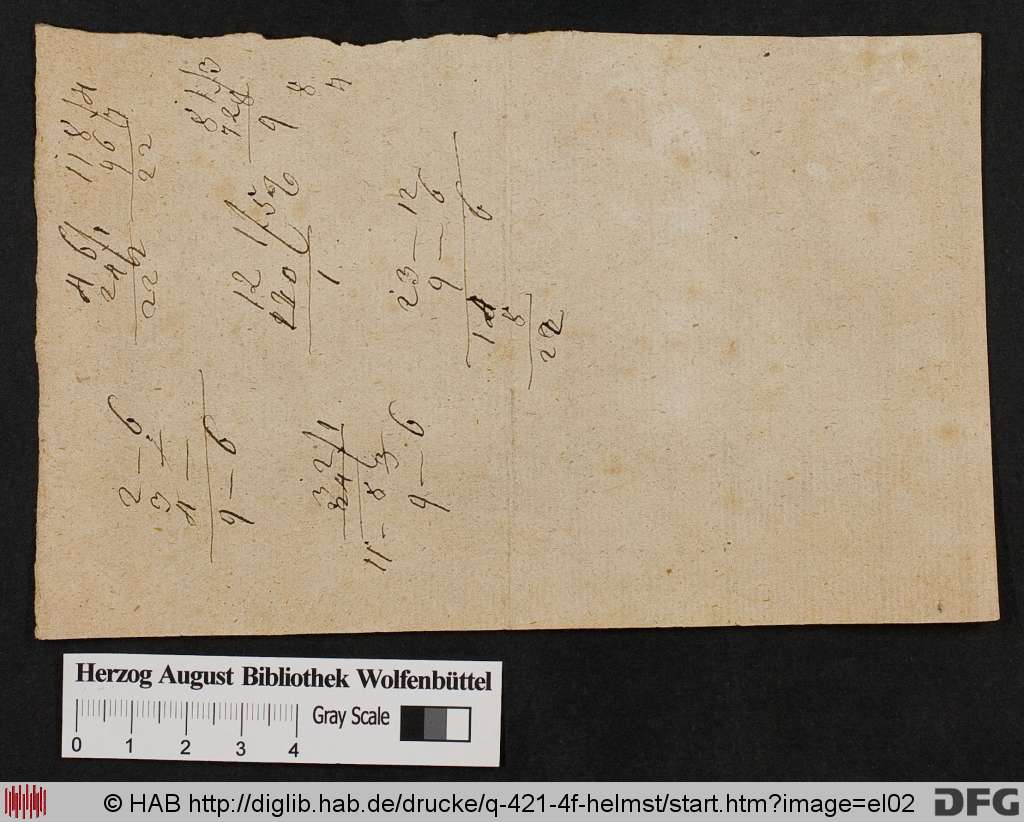 2 — 6
3
4 —
9 — 6
4 6/1
24
22
11 8/4
96
22
3 2/1
24
11 — 8 3
9 — 6
12 1/5
1
8 1/3
72
9
8
23 — 12
9 — 6
6
14
8
22
Herzog August Bibliothek Wolfenbüttel
Gray Scale
0 1 2 3 4
© HAB http://diglib.hab.de/drucke/q-421-4f-helmst/start.htm?image=el02
DFG